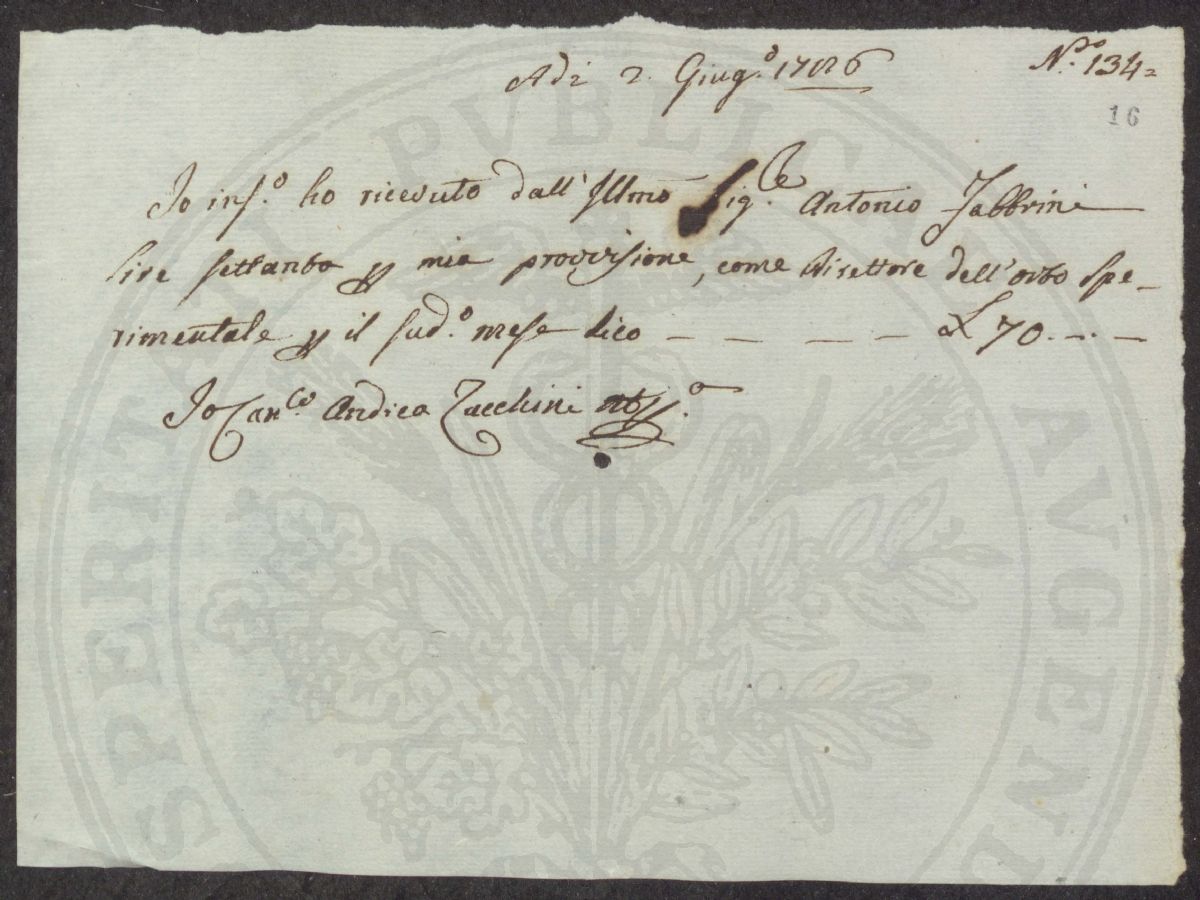 Adi 2. Giug.º 1786
N.º 134=
16
Io inf.º ho riceuto dall' Illmo Sig.re Antonio Fabbrini
lire settanta p mia provvisione, come Direttore dell'orto Spe-
rimentale p il sud.º mese dico - - - - - £ 70.-.-
Io Can.co Andrea Zucchini
PROSPERITATI PVBLICAE AVGENDAE